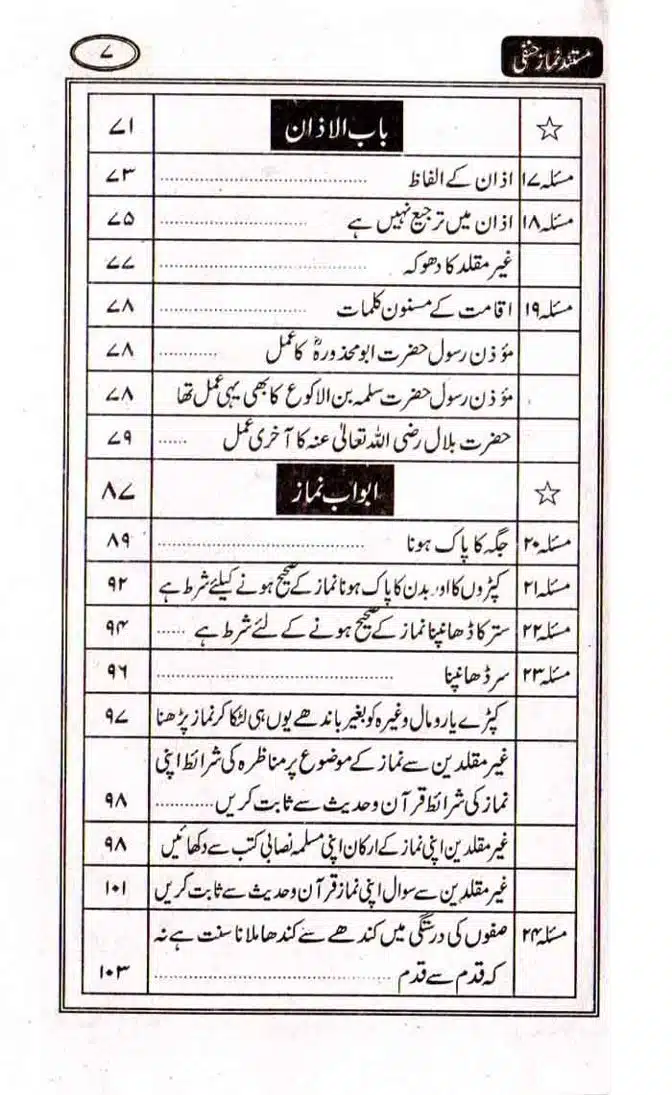 مستند نماز حنفی ۷
☆ باب الاذان ۷۱
مسئلہ ۱۷ اذان کے الفاظ ........................ ۷۳
مسئلہ ۱۸ اذان میں ترجیع نہیں ہے ........................ ۷۵
غیر مقلد کا دھوکہ ........................ ۷۷
مسئلہ ۱۹ اقامت کے مسنون کلمات ........................ ۷۸
مؤذن رسول حضرت ابومحذورہؓ کا عمل ........... ۷۸
مؤذن رسول حضرت سلمہ بن الاکوع کا بھی یہی عمل تھا ۷۸
حضرت بلال رضی اللہ تعالیٰ عنہ کا آخری عمل ...... ۷۹
☆ ابواب نماز ۸۷
مسئلہ ۲۰ جگہ کا پاک ہونا ........................ ۸۹
مسئلہ ۲۱ کپڑوں کا اور بدن کا پاک ہونا نماز کے صحیح ہونے کیلئے شرط ہے ۹۲
مسئلہ ۲۲ ستر کا ڈھانپنا نماز کے صحیح ہونے کے لئے شرط ہے ...... ۹۴
مسئلہ ۲۳ سر ڈھانپنا ........................ ۹۶
کپڑے یا رومال وغیرہ کو بغیر باندھے یوں ہی لٹکا کر نماز پڑھنا ۹۷
غیر مقلدین سے نماز کے موضوع پر مناظرہ کی شرائط اپنی
نماز کی شرائط قرآن و حدیث سے ثابت کریں ........... ۹۸
غیر مقلدین اپنی نماز کے ارکان اپنی مسلمہ نصابی کتب سے دکھائیں ۹۸
غیر مقلدین سے سوال اپنی نماز قرآن و حدیث سے ثابت کریں ۱۰۱
مسئلہ ۲۴ صفوں کی درستگی میں کندھے سے کندھا ملانا سنت ہے نہ
کہ قدم سے قدم ........................ ۱۰۳